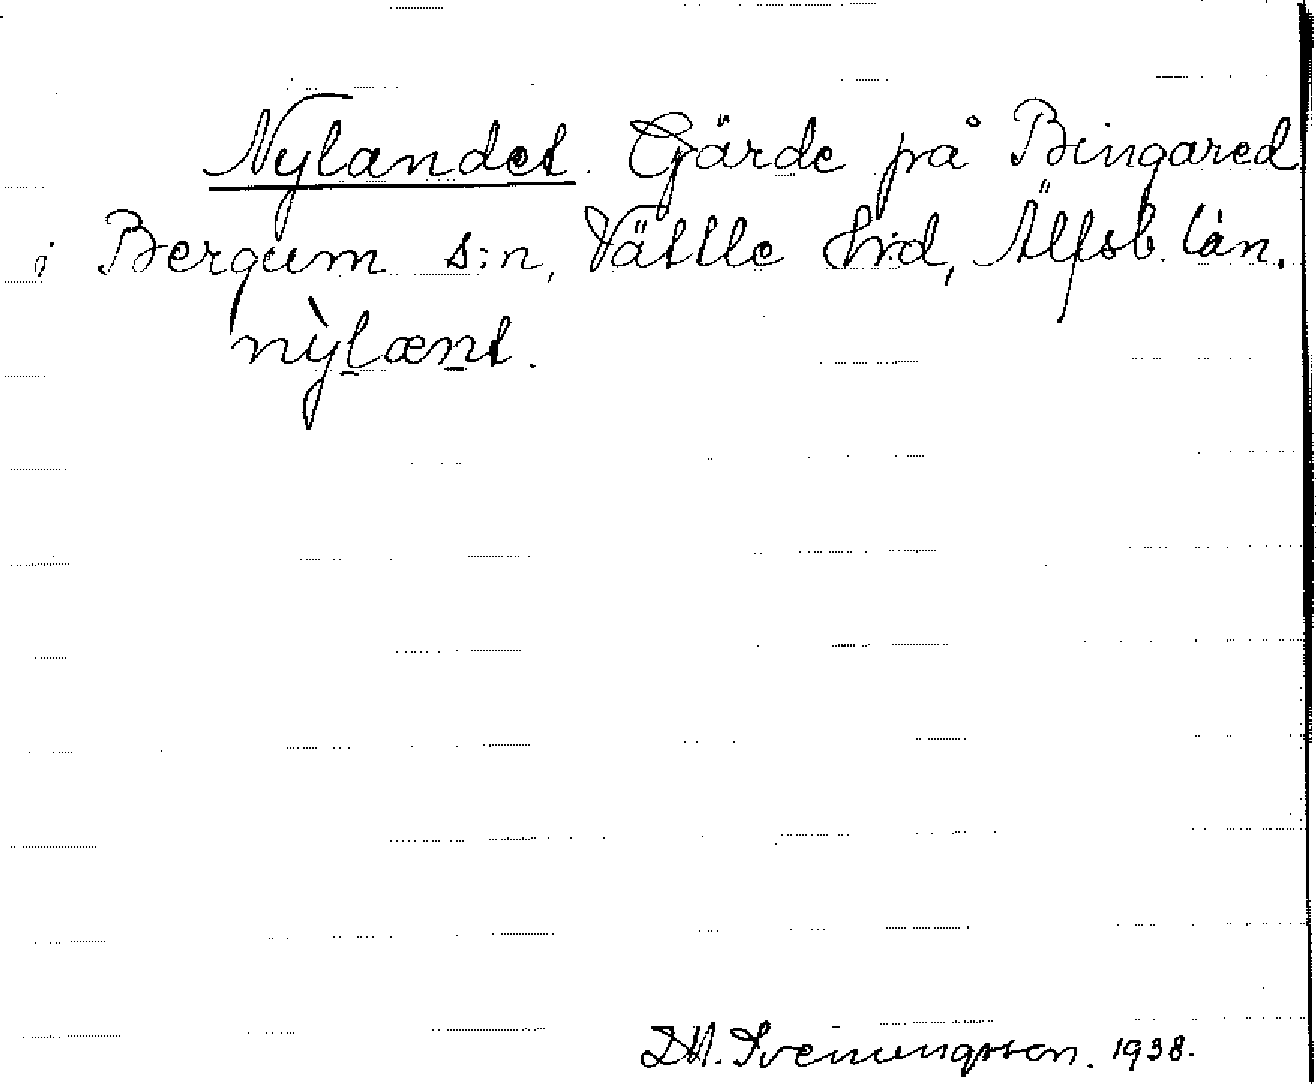 Nylandet. Gärde på Bingared
i Bergum s:n, Vättle hrd, Älfsb. län.
nỳlænt.
D.M. Svenungsson. 1938.